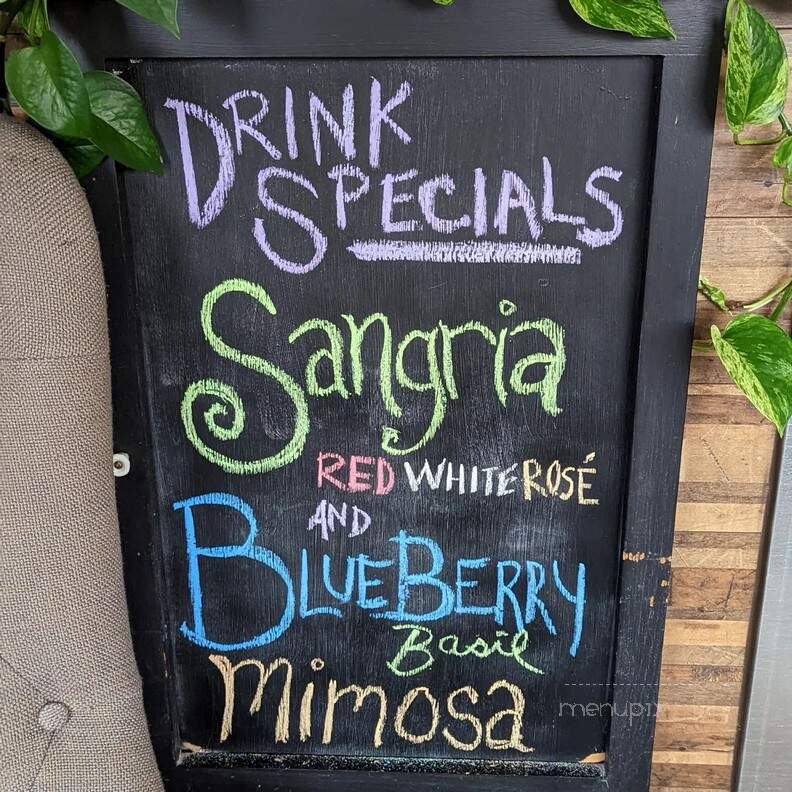 DRINK
SPECIALS
Sangria
RED WHITE ROSÉ
AND
BLUEBERRY
Basil
mimosa
menupix